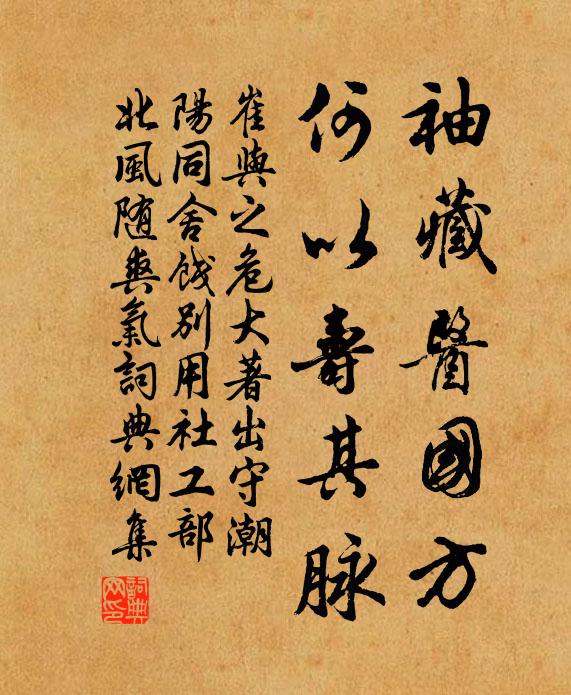 袖藏醫國方
何以壽其脉
崔與之危大著出守潮
陽同舍餞別用社工部
北風随爽氣詞典網集
詞典網印